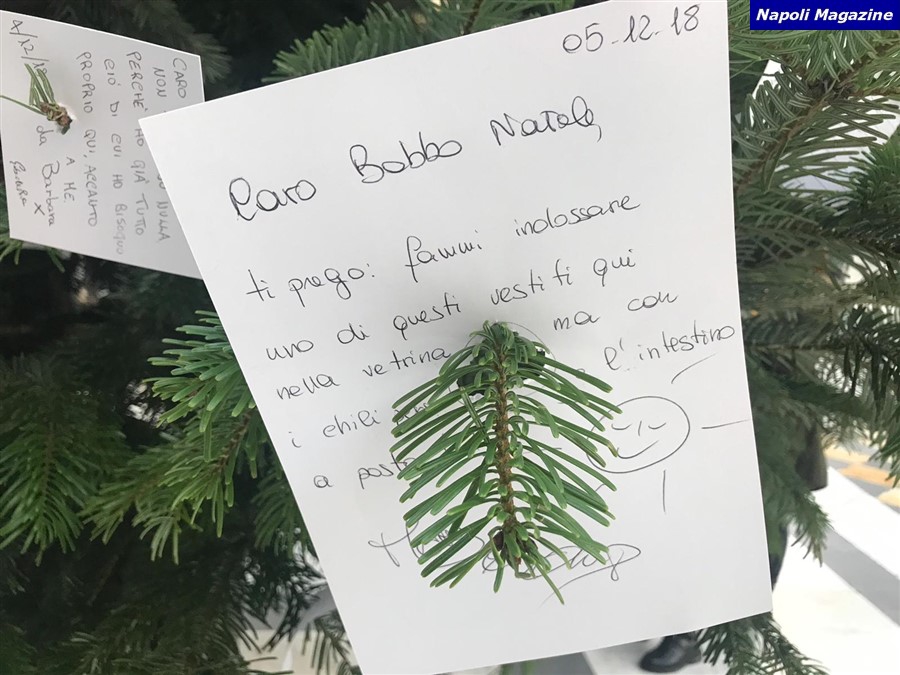 Napoli Magazine
05-12-18
Caro Babbo Natale,
ti prego: fammi indossare
uno di questi vestiti qui
nella vetrina ma con
i chili l'intestino
a posto
4/12/18
CARO
NON NULLA
PERCHÉ HO GIÀ TUTTO
CIÒ DI CUI HO BISOGNO
PROPRIO QUI, ACCANTO
A ME.
da Barbara
X